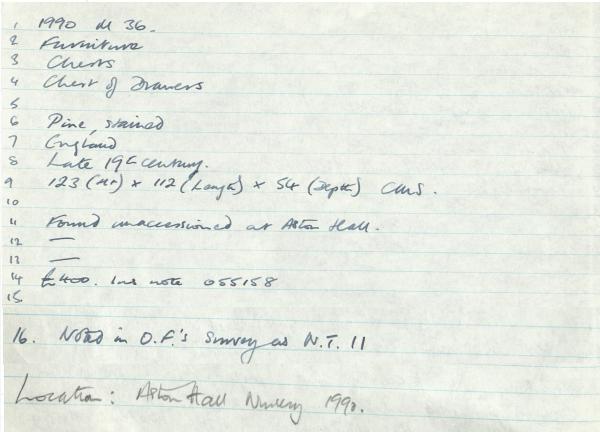 1 1990 M 36.
2 Furniture
3 Chests
4 Chest of Drawers
5
6 Pine, stained
7 England
8 Late 19th century.
9 123 (Ht) x 112 (Length) x 54 (Depth) cms.
10
11 Found unaccessioned at Aston Hall.
12 —
13 —
14 £400. Ins note 055158
15
16. Noted in O.F.'s Survey as N.T. 11
Location: Aston Hall Nursery 1990.